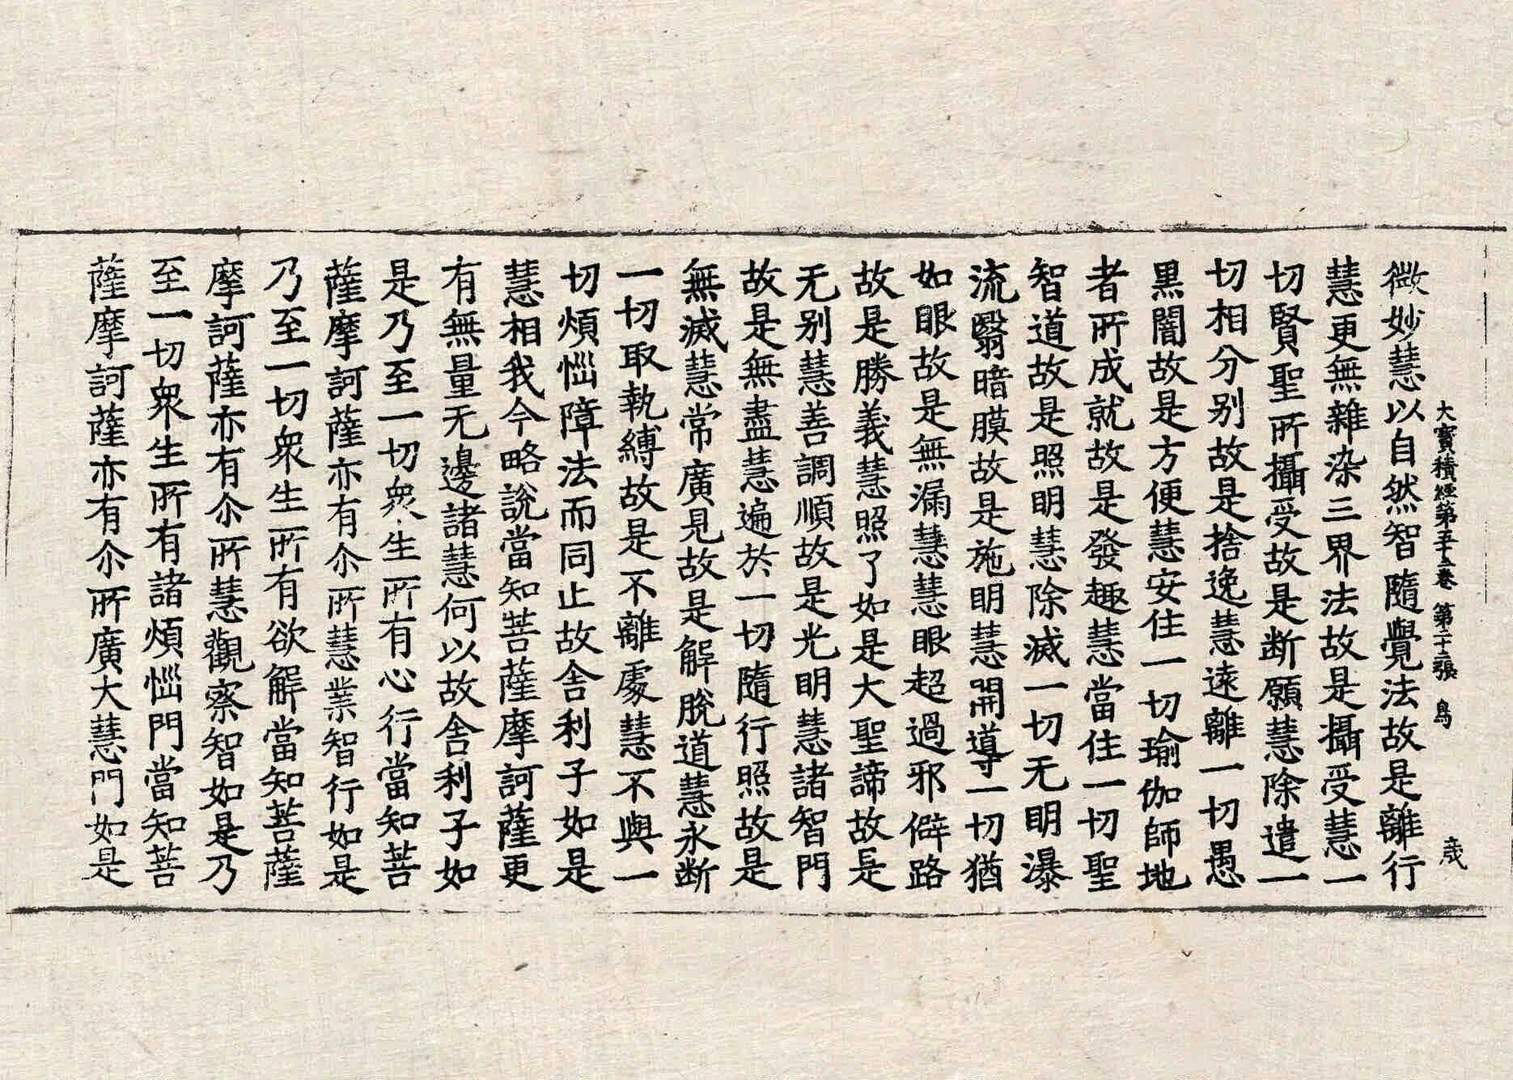 大寶積經第五十五卷 第二十張 鳥
微妙慧以自然智隨覺法故是離行
慧更無雜染三界法故是攝受慧一
切賢聖所攝受故是断願慧除遣一
切相分别故是捨逸慧遠離一切愚
黑闇故是方便慧安住一切瑜伽師地
者所成就故是發趣慧當住一切聖
智道故是照明慧除滅一切无明瀑
流翳暗膜故是施明慧開導一切猶
如眼故是無漏慧慧眼超過邪僻路
故是勝義慧照了如是大聖諦故是
无别慧善調順故是光明慧諸智門
故是無盡慧遍於一切隨行照故是
無滅慧常廣見故是解脫道慧永断
一切取執縛故是不離處慧不與一
切煩惱障法而同止故舍利子如是
慧相我今略說當知菩薩摩訶薩更
有無量无邊諸慧何以故舍利子如
是乃至一切衆生所有心行當知菩
薩摩訶薩亦有尒所慧業智行如是
乃至一切衆生所有欲解當知菩薩
摩訶薩亦有尒所慧觀察智如是乃
至一切衆生所有諸煩惱門當知菩
薩摩訶薩亦有尒所廣大慧門如是